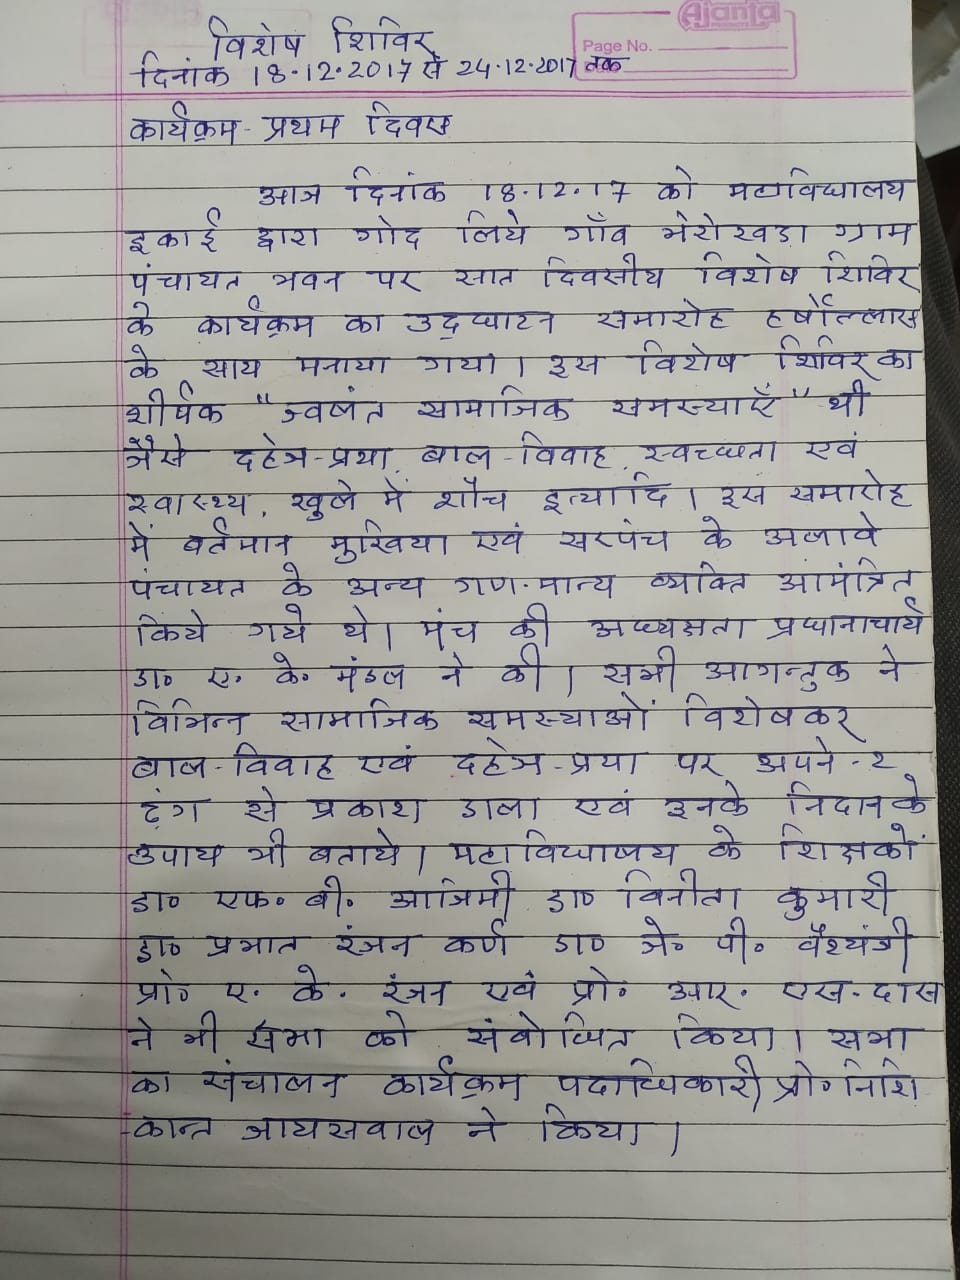 Ajanta
Page No.
विशेष शिविर
दिनांक 18.12.2017 से 24.12.2017 तक
कार्यक्रम - प्रथम दिवस
आज दिनांक 18.12.17 को महाविद्यालय
इकाई द्वारा गोद लिये गाँव भेरोखडा ग्राम
पंचायत भवन पर सात दिवसीय विशेष शिविर
के कार्यक्रम का उद्घाटन समारोह हर्षोल्लास
के साथ मनाया गया। इस विशेष शिविर का
शीर्षक "ज्वलंत सामाजिक समस्याएँ" थी
जैसे दहेज-प्रथा, बाल-विवाह, स्वच्छता एवं
स्वास्थ्य, खुले में शौच इत्यादि। इस समारोह
में वर्तमान मुखिया एवं सरपंच के अलावे
पंचायत के अन्य गण-मान्य व्यक्ति आमंत्रित
किये गये थे। मंच की अध्यक्षता प्रधानाचार्य
डा० ए. के. मंडल ने की। सभी आगन्तुक ने
विभिन्न सामाजिक समस्याओं विशेषकर
बाल-विवाह एवं दहेज-प्रथा पर अपने-२
ढ़ंग से प्रकाश डाला एवं उनके निदान के
उपाय भी बताये। महाविद्यालय के शिक्षकों
डा० एफ० बी. आजिमी डा० विनीता कुमारी
डा० प्रभात रंजन कर्ण डा० जे० पी० वैश्यंत्री
प्रो० ए. के. रंजन एवं प्रो० आर. एस. दास
ने भी सभा को संबोधित किया। सभा
का संचालन कार्यक्रम पदाधिकारी प्रो० निशि
-कान्त जायसवाल ने किया।